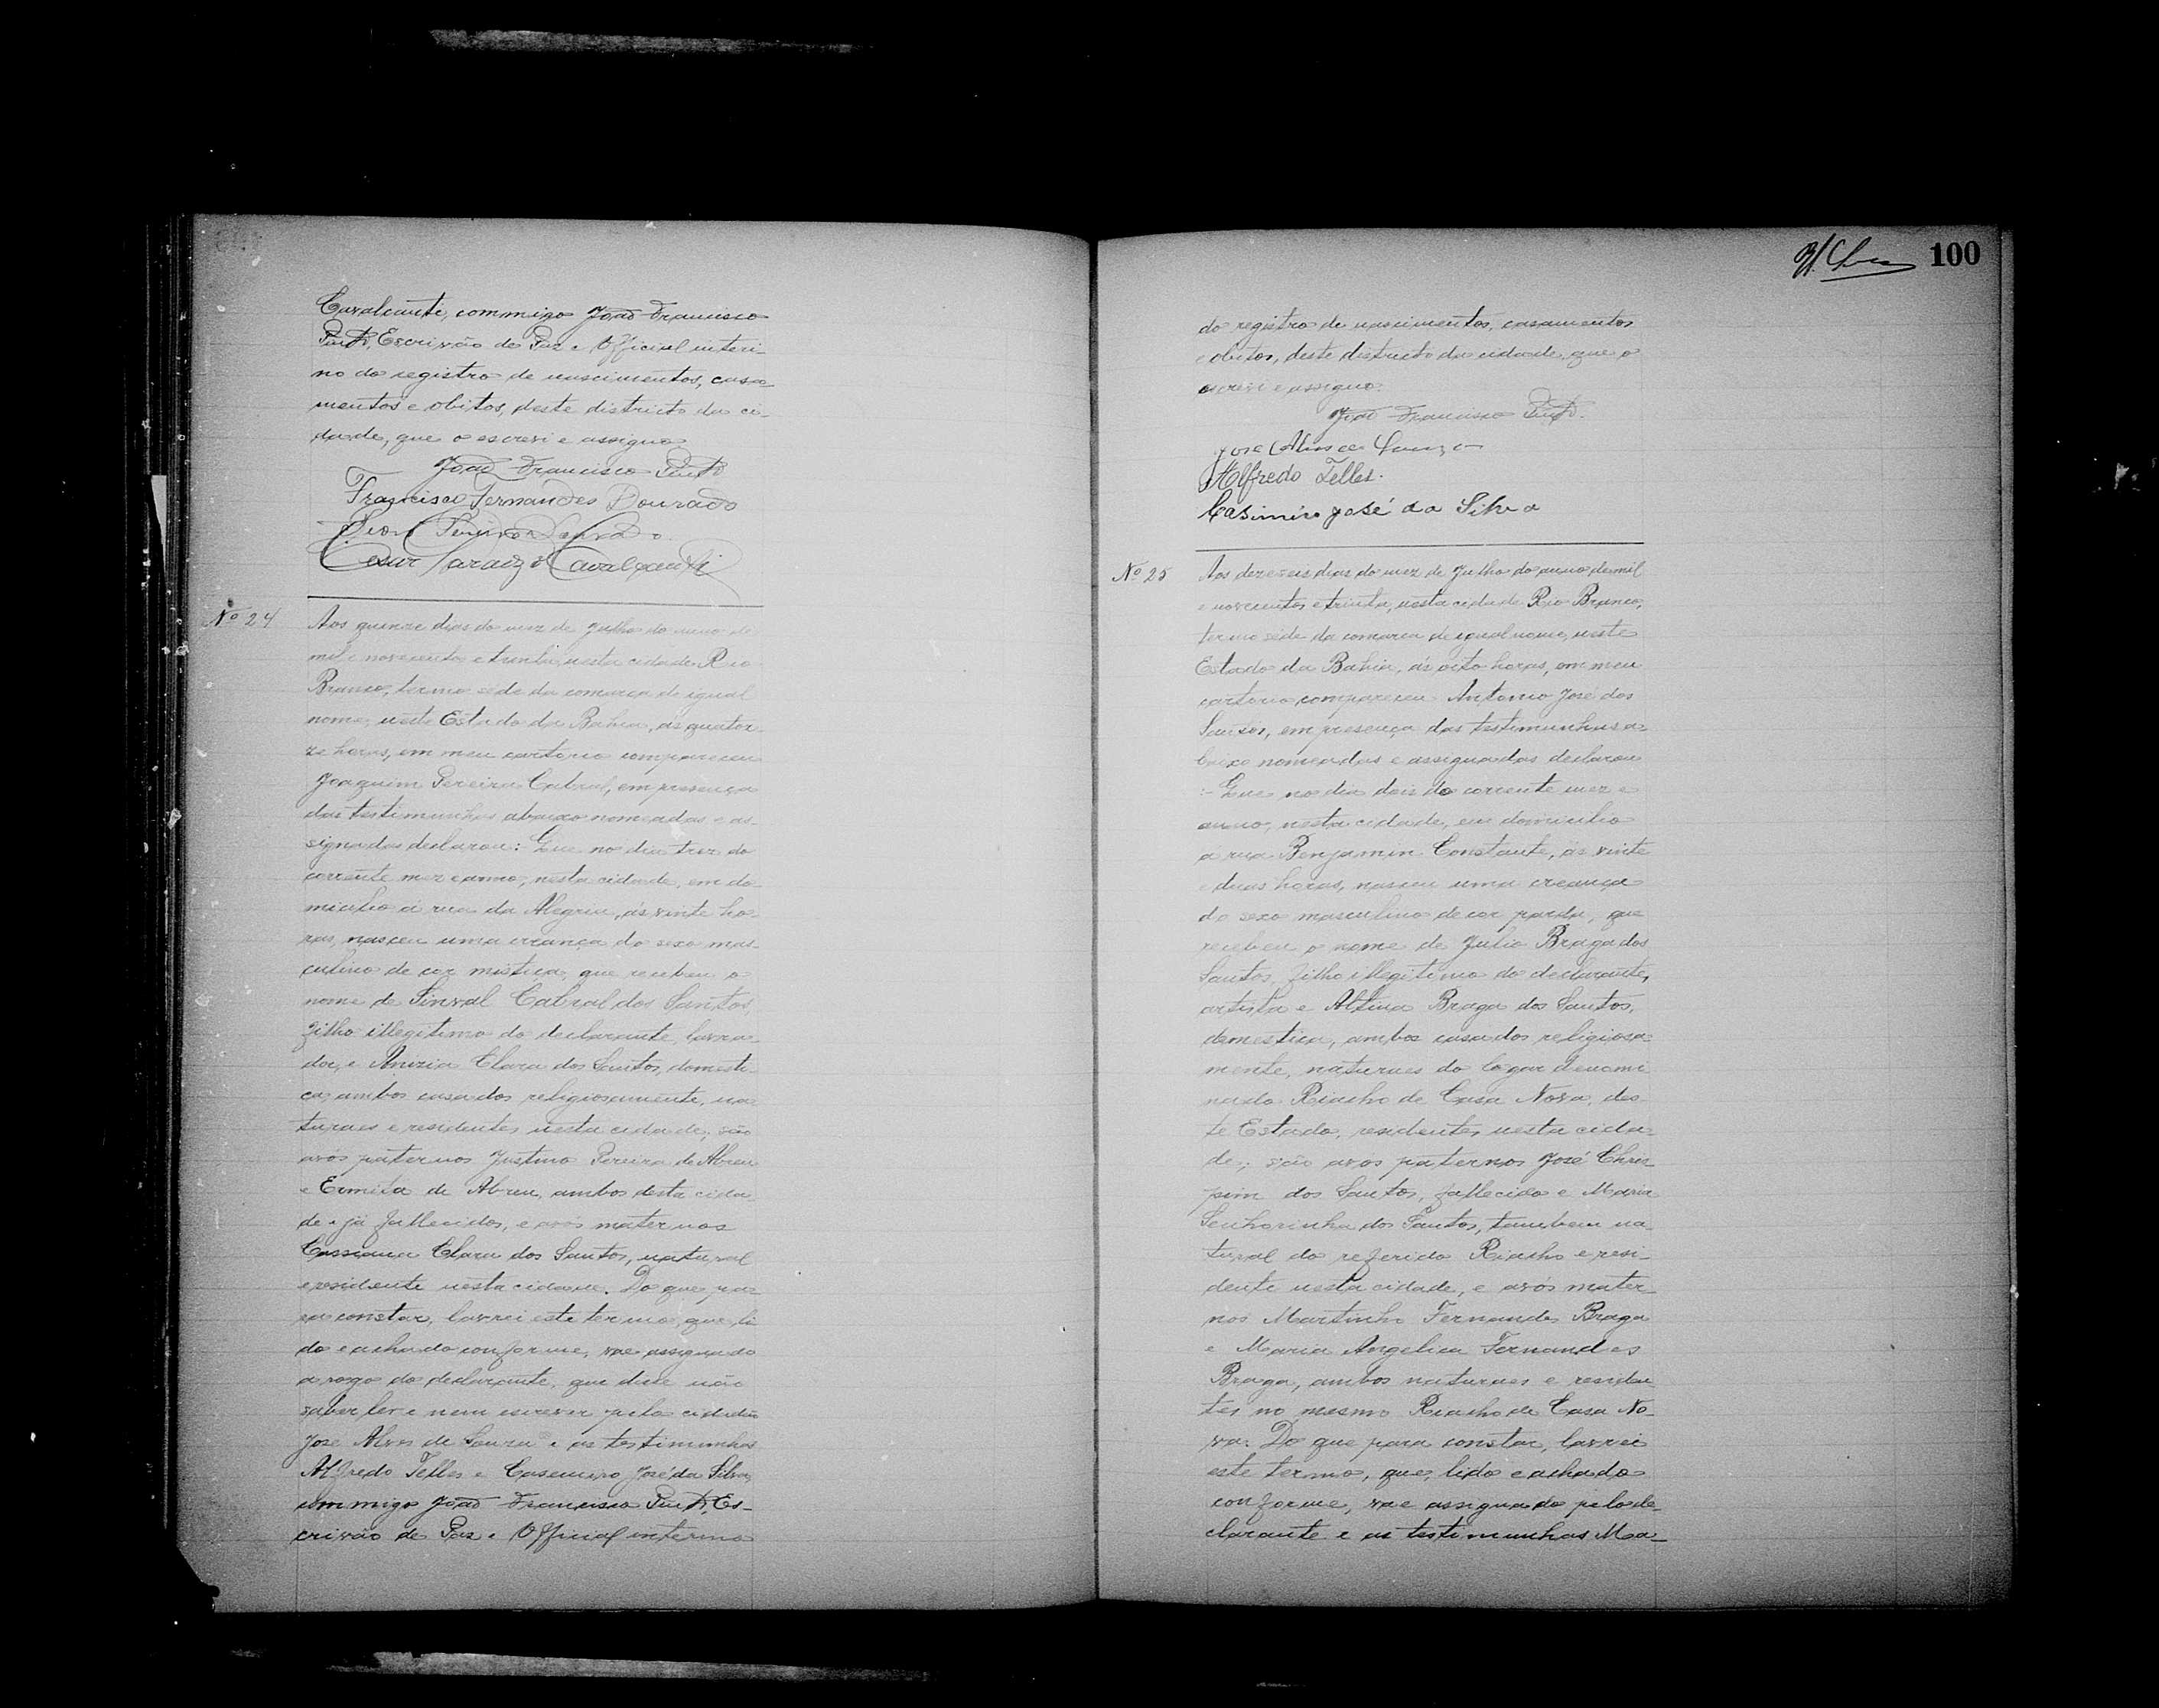 Cavalcante, commigo João Francisco
Pinto, Escrivão de Paz e Official interi-
no do registro de nascimentos, casa-
mentos e obitos, deste districto da ci-
dade, que o escrevi e assigno.
João Francisco Pinto
Francisco Fernandes Dourado
Cavalcanti
Nº 24
Aos quinze dias do mez de Julho do anno de
mil e novecentos e trinta, nesta cidade Rio
Branco, termo séde da comarca de igual
nome, neste Estado da Bahia, ás quator-
ze horas, em meu cartorio compareceu
Joaquim Pereira Cabral, em presença
das testimunhas abaixo nomeadas e as-
signadas declarou: Que no dia trez do
corrente mez e anno, nesta cidade, em do-
micilio á rua da Alegria, ás vinte ho-
ras, nasceu uma creança do sexo mas-
culino de cor mistica, que recebeu o
nome de Sinval Cabral dos Santos,
filho illegitimo do declarante, lavra-
dor, e Anizia Clara dos Santos, domesti-
ca, ambos casados religiosamente, na-
turaes e residentes nesta cidade; são
avós paternos Justino Pereira de Abreu
e Ermita de Abreu, ambos desta cida-
de e já fallecidos, e avós maternos
Cassiana Clara dos Santos, natural
e residente nesta cidade. Do que pa-
ra constar, lavrei este termo, que li-
do e achado conforme, vae assignado
a rogo do declarante, que disse não
saber ler e nem escrever pelo cidadão
José Alves de Souza e as testimunhas
Alfredo Telles e Casemiro José da Silva,
commigo João Francisco Pinto, Es-
crivão de Paz e Official interino
100
do registro de nascimentos, casamentos
e obitos, deste districto da cidade, que o
escrevi e assigno.
João Francisco Pinto.
José Alves de Souza
Alfredo Telles.
Casimiro José da Silva
Nº 25
Aos dezeseis dias do mez de Julho do anno de mil
e novecentos e trinta, nesta cidade Rio Branco,
termo séde da comarca de igual nome, neste
Estado da Bahia, ás oito horas, em meu
cartorio compareceu Antonio José dos
Santos, em presença das testimunhas a-
baixo nomeadas e assignadas declarou
:- Que no dia dois do corrente mez e
anno, nesta cidade, em domicilio
á rua Benjamin Constante, ás vinte
e duas horas, nasceu uma creança
do sexo masculino de cor parda, que
recebeu o nome de Julio Braga dos
Santos, filho illegitimo do declarante,
artista e Altina Braga dos Santos,
domestica, ambos casados religiosa-
mente, naturaes do logar denomi-
nado Riacho de Casa Nova, des-
te Estado, residentes nesta cida-
de; são avós paternos José Chris-
pim dos Santos, fallecido e Maria
Senhorinha dos Santos, tambem na-
tural do referido Riacho e resi-
dente nesta cidade, e avós mater-
nos Martinho Fernandes Braga
e Maria Angelica Fernandes
Braga, ambos naturaes e residen-
tes no mesmo Riacho de Casa No-
va. Do que para constar, lavrei
este termo, que, lido e achado
conforme, vae assignado pelo de-
clarante e as testimunhas Ma-